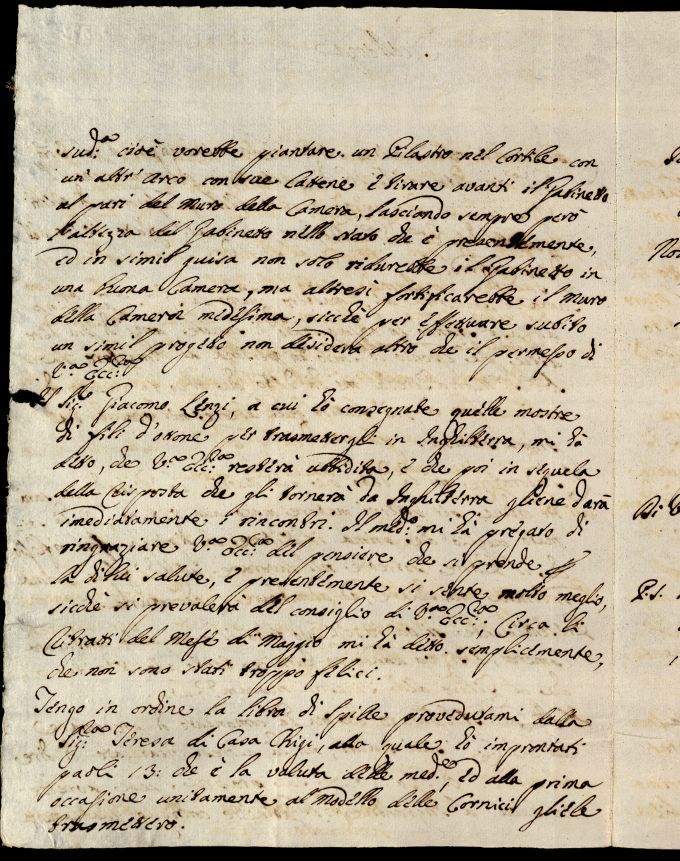 sud.ᵃ cioè vorebbe piantare un Pilastro nel Cortile con
un'altr'Arco con sue Cattene è tirare avanti il Gabinetto
al pari del Muro della Camera, lasciando sempre però
l'altezza del Gabinetto nello stato che è presentemente,
ed in simil guisa non solo ridurebbe il Gabinetto in
una buona Camera, ma altresì fortificarebbe il muro
della Camera medesima, sicchè per effettuare subito
un simil progetto non desidera altro che il permesso di
V.ᵃ Ecc.ᶻᵃ
Il Sig.ʳ Giacomo Lenzi, a cui hò consegnate quelle mostre
di fili d'ottone per trasmettergli in Inghilterra, mi hà
ditto, che V.ᵃ Ecc.ᶻᵃ resterà ubbidita, è che poi in seguela
della Risposta che gli tornerà da Inghilterra gliene darà
imediatamente i rincontri. Il med.º mi hà pregato di
ringraziare V.ᵃ Ecc.ᶻᵃ del pensiere che si prende p
la di lui salute, è presentemente si sente molto meglio,
sicchè si prevalerà del consiglio di V.ᵃ Ecc.ᶻᵃ; Circa li
Ritratti del Mese di Maggio mi hà ditto semplicemente,
che non sono stati troppo felici.
Tengo in ordine la libra di Spille provedutami dalla
Sig.ʳᵃ Teresa di Casa Chigi, alla quale hò improntati
paoli 13: che è la valuta delle med.ᵉ, ed alla prima
occasione unitamente al modello delle Cornici gliele
trasmetterò.
Di V
P.S.